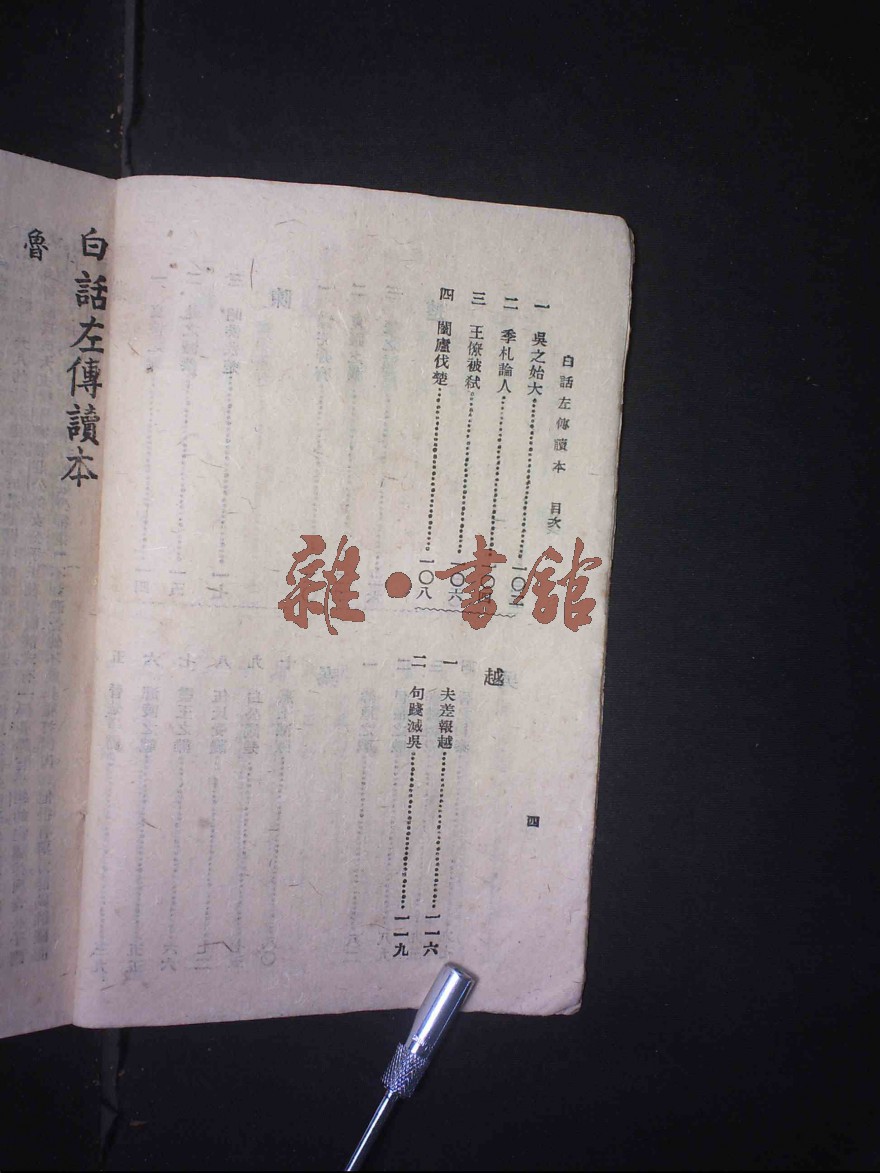 白話左傳讀本 目次
一 吳之始大 一〇三
二 季札論人 一〇四
三 王僚被弒 一〇六
四 闔廬伐楚 一〇八
越
一 夫差報越 一一六
二 句踐滅吳 一一九
四
白話左傳讀本
魯
雜·書館